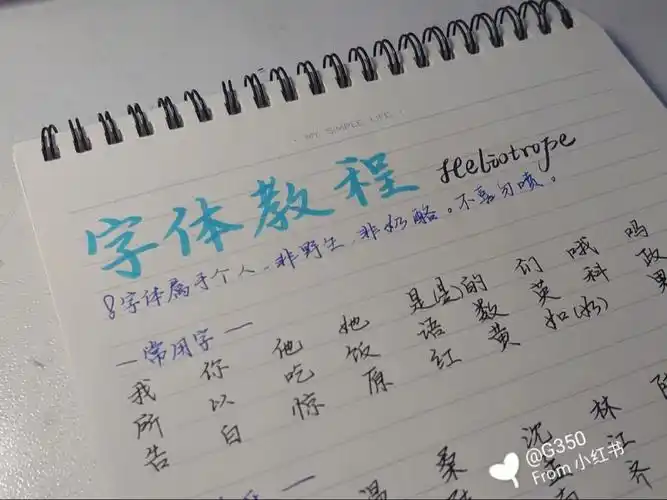 MY SIMPLE LIFE
字体教程 Heliotrope
字体属于个人、非野生、非奶酪。不喜勿喷。
一常用字一
我 你 他 她 是(是)的 们 哦 吗
所 以 吃 饭 语 数 英 科 政
告 白 惊 原 红 黄 如(如) 男
温 桑 沈 林 陈
江
齐
@G350
From 小红书